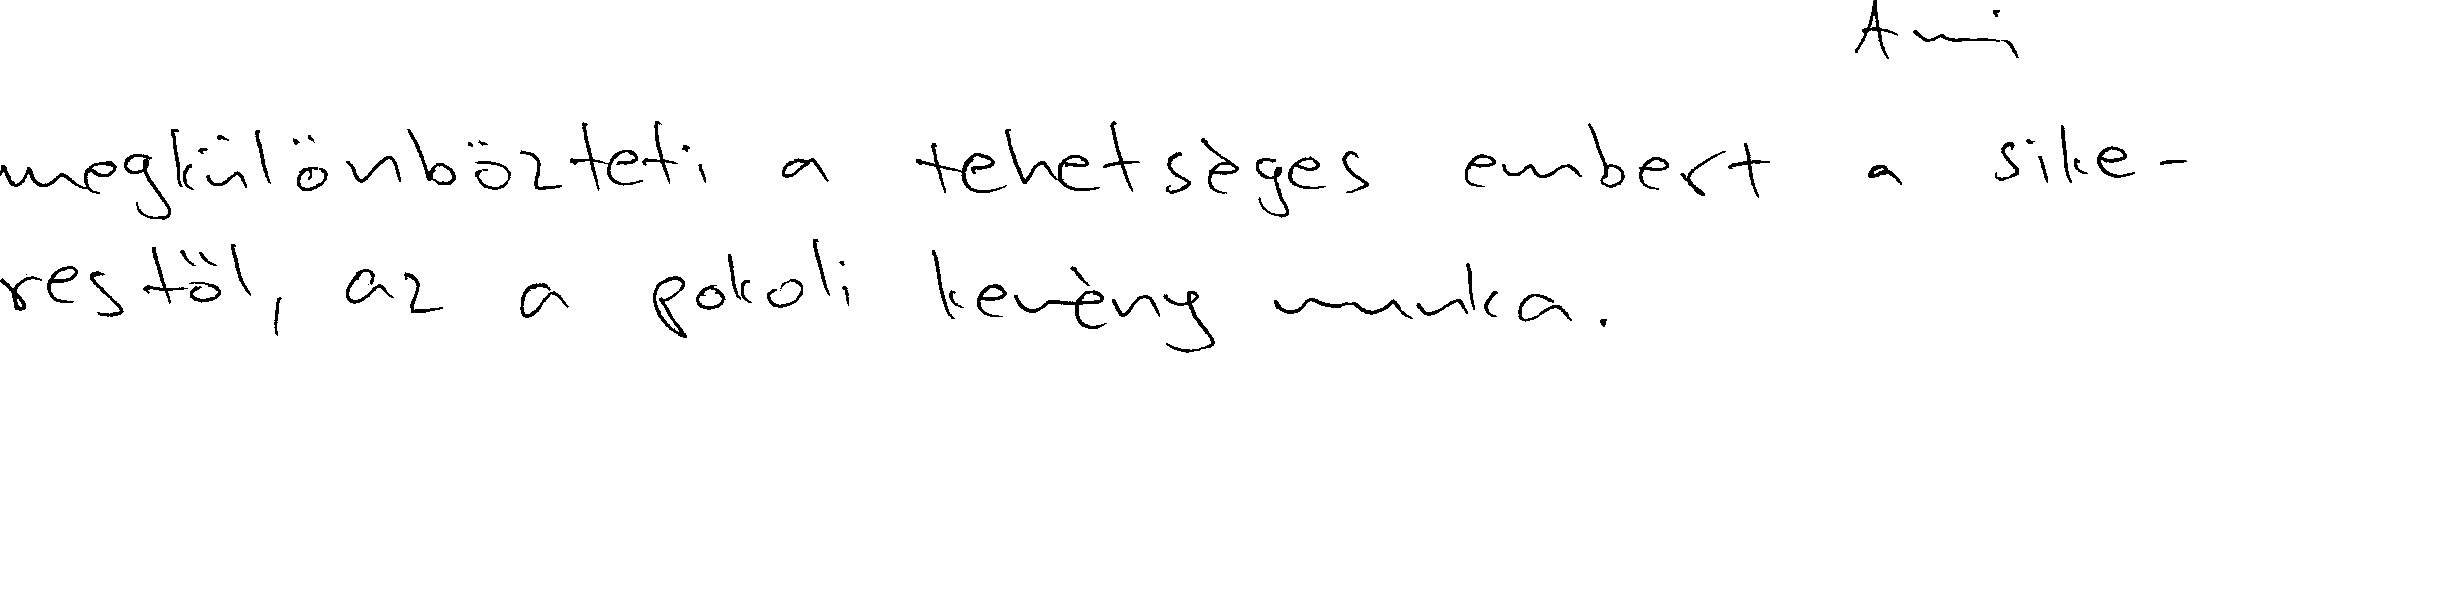 Ami
megkülönbözteti a tehetsèges embert a sike-
restöl, az a pokoli kemèny munka.